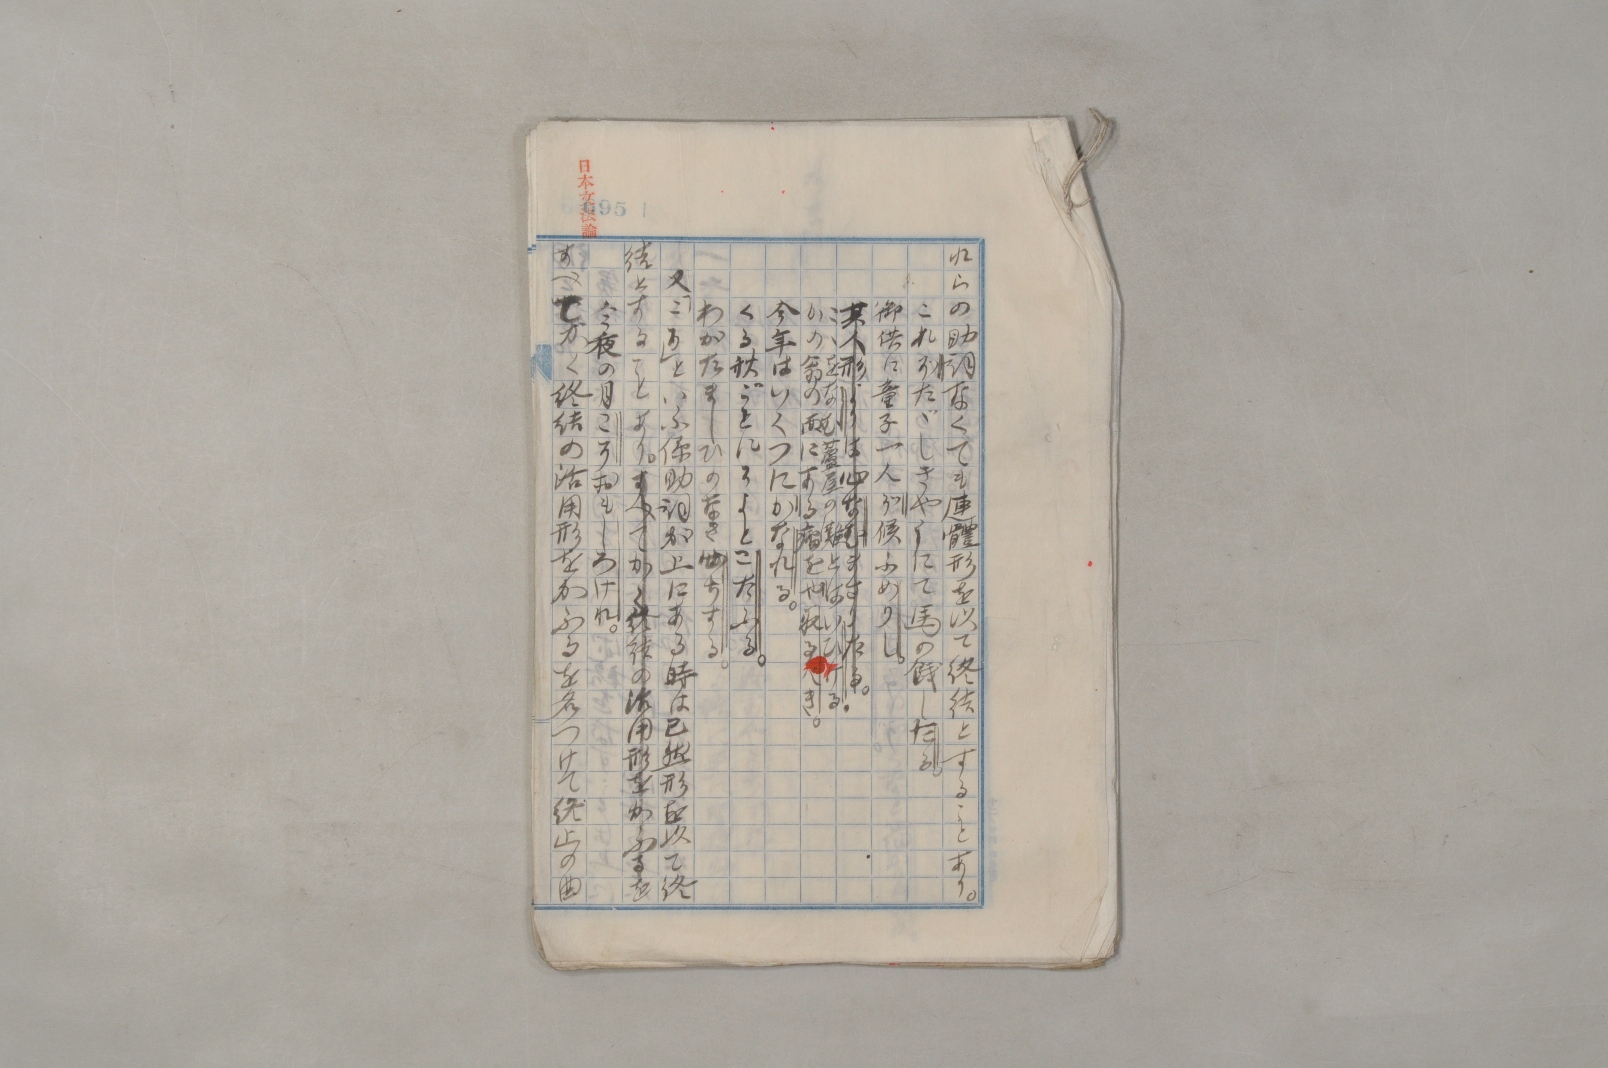 れらの助詞なくても連體形を以て終結とすることあり。
これぞたゞしきやうにて馬の餞したる。
御供に童子一人ぞ候ふめりし。
其人形よりは心なむまさりたる。
こゝをなむ蘆屋の難とはいひける
かの翁の面にある瘤をや取るべき。
今年はいくつにかなれる。
くる秋ごとにそよとこたふる。
わがたましひのなき心ちする。
又「こそ」といふ係助詞が上にある時は已然形を以て終
結とすることあり。すべてかく終結の活用形をかふるを
今夜の月こそおもしろけれ。
すべてかく終結の活用形をかふるを名つけて終止の曲
日本文法論
95